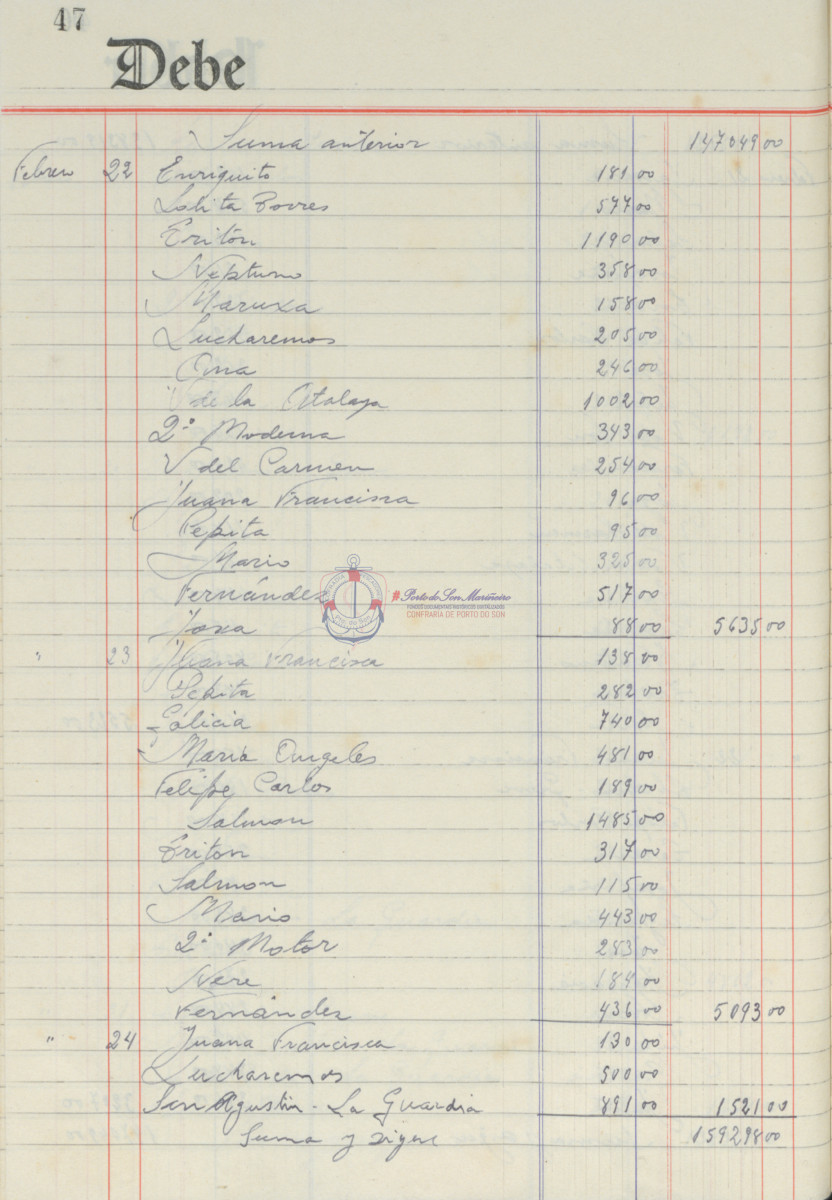 47
Debe
Suma anterior 147049 00
Febrero 22 Enriquito 181 00
Lolita Torres 577 00
Triton 1190 00
Neptuno 358 00
Maruxa 158 00
Lucharemos 205 00
Ana 246 00
V de la Atalaya 1002 00
2º Moderna 343 00
V del Carmen 254 00
Juana Francisca 96 00
Pepita 95 00
Mario 325 00
Fernández 517 00
Joxa 88 00 5635 00
" 23 Juana Francisca 138 00
Pepita 282 00
Galicia 740 00
Maria Angeles 481 00
Felipe Carlos 189 00
Salmon 1485 00
Triton 317 00
Salmon 115 00
Mario 443 00
2º Motor 283 00
Nere 184 00
Fernández 436 00 5093 00
" 24 Juana Francisca 130 00
Lucharemos 500 00
San Agustin - La Guardia 891 00 1521 00
Suma y sigue 159298 00
#PortodoSonMariñeiro
FONDOS DOCUMENTAIS HISTÓRICOS DIXITALIZADOS
CONFRARÍA DE PORTO DO SON